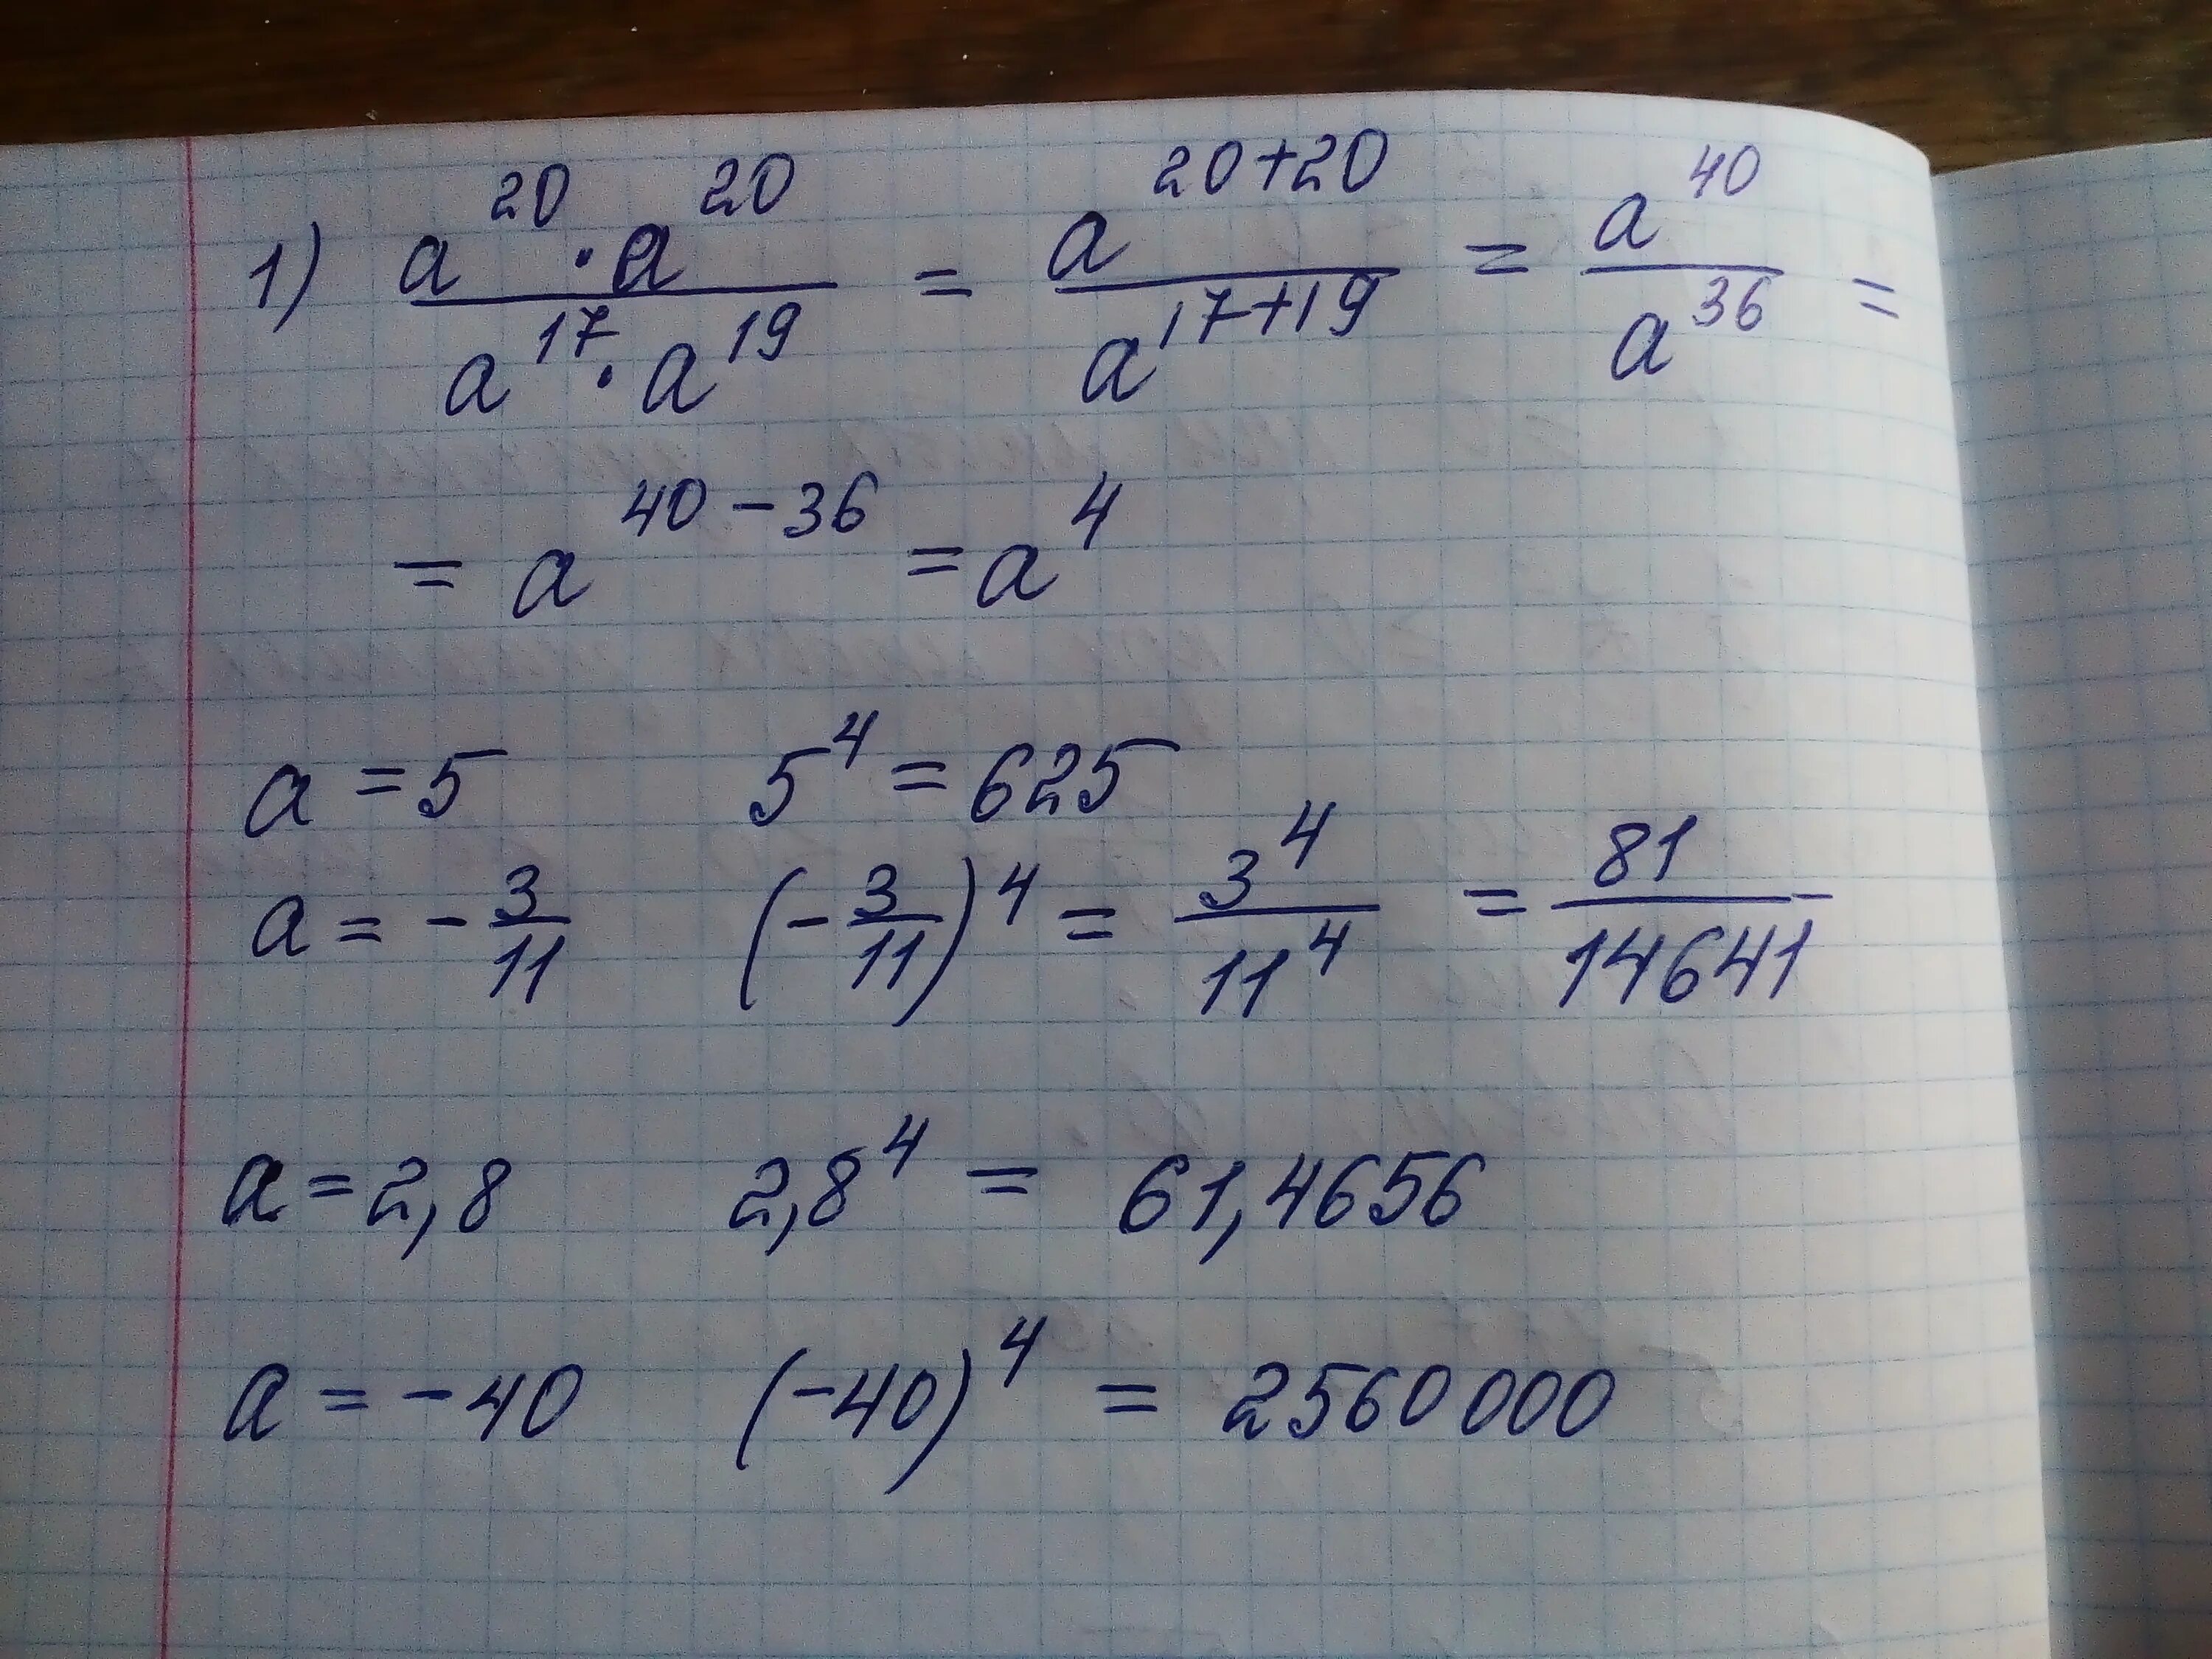 1) a^20 · a^20 / a^17 · a^19 = a^20+20 / a^17+19 = a^40 / a^36 =
= a^40-36 = a^4
a = 5 5^4 = 625
a = - 3/11 (- 3/11)^4 = 3^4 / 11^4 = 81 / 14641
a = 2,8 2,8^4 = 61,4656
a = -40 (-40)^4 = 2560000